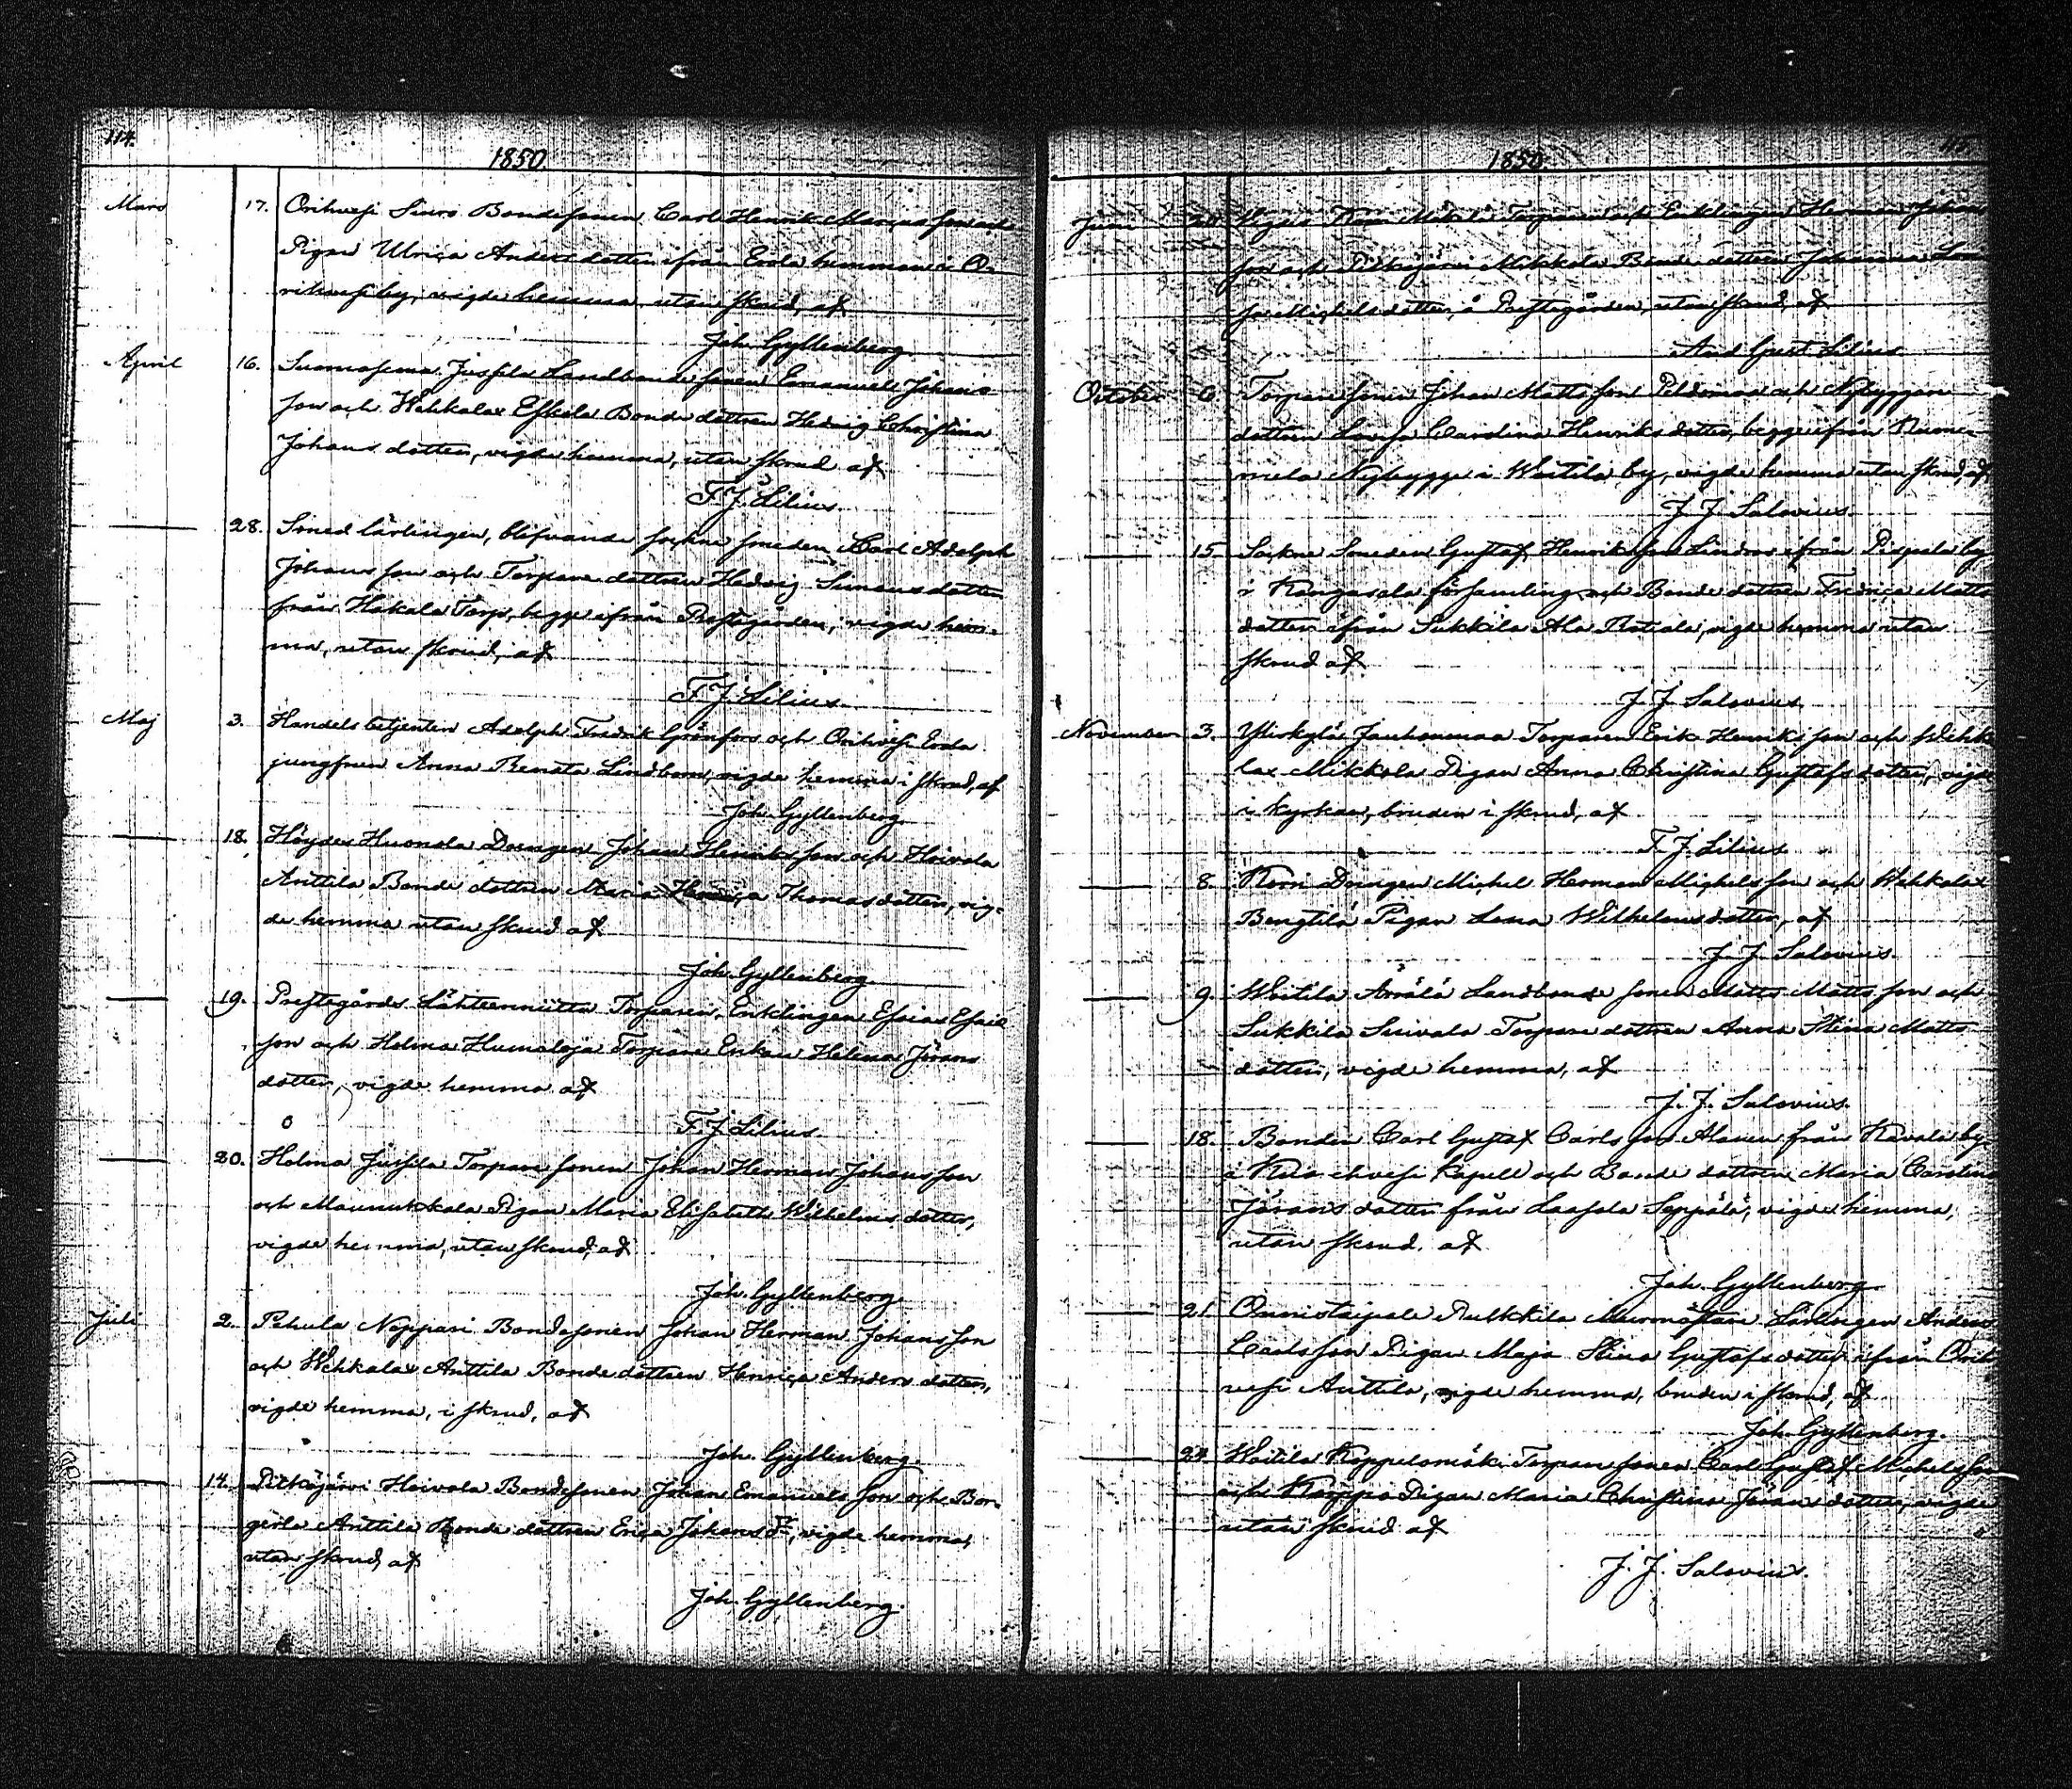 114.
1850
Mars 17. Orihvesi Siuro Bondesonen Carl Henrik Mariasson och
Pigan Ulrica Andersdotter ifrån Erola hemman i O-
rihvesi by, vigde hemma utan skrud, af
Joh. Gyllenberg.
April 16. Suomasema Jussila Landbondesonen Emanuel Johans-
son och Wehkalax Eskola Bondedottren Hedvig Christina
Johansdotter, vigde hemma, utan skrud af
F. J. Lilius.
28. Smed lärlingen, blifvande sockne smeden Carl Adolph
Johansson och Torparedottren Hedvig Simonsdotter
från Hakala Torp, begge ifrån Prestegården, vigde hem-
ma, utan skrud, af
F. J. Lilius.
Maj 3. Handelsbetjenten Adolph Fredrik Grönfors och Orihvesi Erola
jungfrun Anna Renata Lindbom, vigde hemma i skrud, af
Joh. Gyllenberg.
18. Höydes Huonola Drengen Johan Henriksson och Hoivola
Anttila Bondedottren Maria Thomasdotter, vig-
de hemma utan skrud af
Joh. Gyllenberg.
19. Prestegårds Lähteenniitta Torparen, Enklingen Esaias Esaie
son och Holma Humaloja Torpare Enkan Helena Jörans
dotter, vigde hemma af
F. J. Lilius.
20. Holma Jussila Torparesonen Johan Herman Johansson
och Maunukkala Pigan Maria Elisabeth Wilhelmsdotter,
vigde hemma, utan skrud, af
Joh. Gyllenberg.
Juli 2. Pehula Neppari Bondesonen Johan Herman Johansson
och Wehkalax Anttila Bondedottren Henrica Andersdotter,
vigde hemma, i skrud, af
Joh. Gyllenberg.
14. Pitkäjärvi Hoivola Bondesonen Johan Emanuelsson och Bön
gerla Anttila Bondedottren Erica Johansdr, vigde hemma,
utan skrud, af
Joh. Gyllenberg.
1850.
Torparen och Enklingen Herman Johans
son och Pitkäjärvi Mikkola Bondedottren Johanna
Michelsdotter, å Prestegården, utan skrud, af
And Gust Lilius
October 6 Torparesonen Johan Mattsson Peldomaa och Nybyggare
dottren Lovisa Carolina Henriksdotter, begge ifrån
Nybygge i Woitila by, vigde hemma utan skrud, af
J. J. Salovius.
15. Sockne Smeden Gustaf Henriksson Lindros ifrån Pispala by
i Kangasala församling och Bondedottren Fredrica Matts
dotter ifrån Sukkila Ala Rotiala, vigde hemma utan
skrud af
J. J. Salovius.
November 3. Yliskylä Jauhonmaa Torparen Erik Henriksson och Wehka
lax Mikkola Pigan Anna Christina Gustafsdotter, vigde
i kyrkan, bruden i skrud, af
F. J. Lilius
8. Drengen Michel Herman Michelsson och Wehkalax
Bengtilä Pigan Lena Wilhelmsdotter, af
J. J. Salovius.
9. Woitila Landbondesonen Matts Mattsson och
Sukkila Suivala Torparedottren Anna Stina Matts
dotter, vigde hemma, af
J. J. Salovius.
18. Bonden Carl Gustaf Carlsson Alanen från Kavala by
i Kuorehvesi Kapell och Bondedottren Maria Carolina
Jöransdotter från Laasola Seppälä, vigde hemma,
utan skrud. af
Joh. Gyllenberg
21. Onnistaipale Pulkkila Murmästare Lärlingen Anders
Carlsson Pigan Maja Stina Gustafsdotter ifrån Orih
vesi Anttila, vigde hemma, bruden i skrud, af
Joh. Gyllenberg.
24 Woitila Koppelomäki Torparesonen Carl Gustaf Michelsson
och Karppa Pigan Maria Christina Jöransdotter, vigde
utan skrud af
J. J. Salovius.